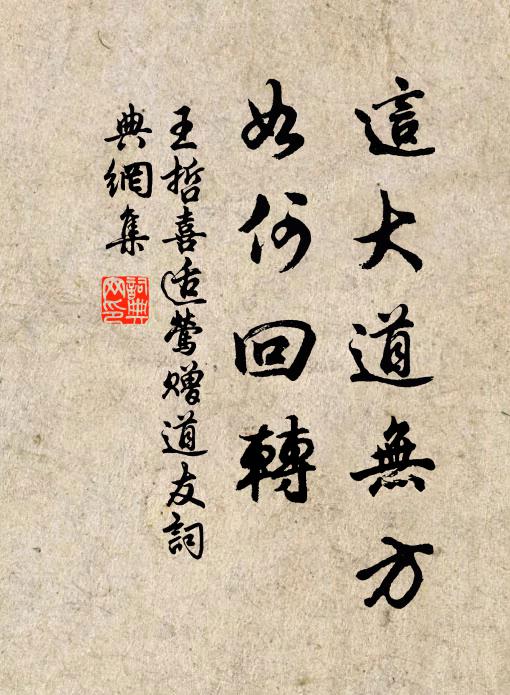 這大道無方
如何回轉
王哲喜迁鶯赠道友詞
典網集
詞典
网印